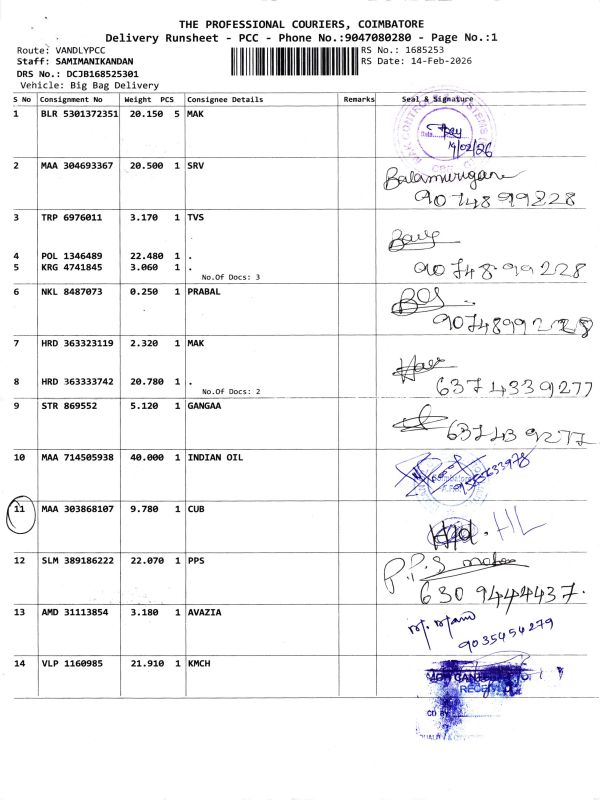 THE PROFESSIONAL COURIERS, COIMBATORE
Delivery Runsheet - PCC - Phone No.:9047080280 - Page No.:1
Route: VANDLYPCC RS No.: 1685253
Staff: SAMIMANIKANDAN RS Date: 14-Feb-2026
DRS No.: DCJB168525301
Vehicle: Big Bag Delivery
S No Consignment No Weight PCS Consignee Details Remarks Seal & Signature
1 BLR 5301372351 20.150 5 MAK
14/02/26
2 MAA 304693367 20.500 1 SRV
Balamurugan
9074899228
3 TRP 6976011 3.170 1 TVS
4 POL 1346489 22.480 1 .
5 KRG 4741845 3.060 1 . 9074899228
No.Of Docs: 3
6 NKL 8487073 0.250 1 PRABAL
9074899228
7 HRD 363323119 2.320 1 MAK
8 HRD 363333742 20.780 1 . 6374339277
No.Of Docs: 2
9 STR 869552 5.120 1 GANGAA
10 MAA 714505938 40.000 1 INDIAN OIL
11 MAA 303868107 9.780 1 CUB
12 SLM 389186222 22.070 1 PPS
P.P.S
630 9444437.
13 AMD 31113854 3.180 1 AVAZIA
9035454279
14 VLP 1160985 21.910 1 KMCH
RECEIVED